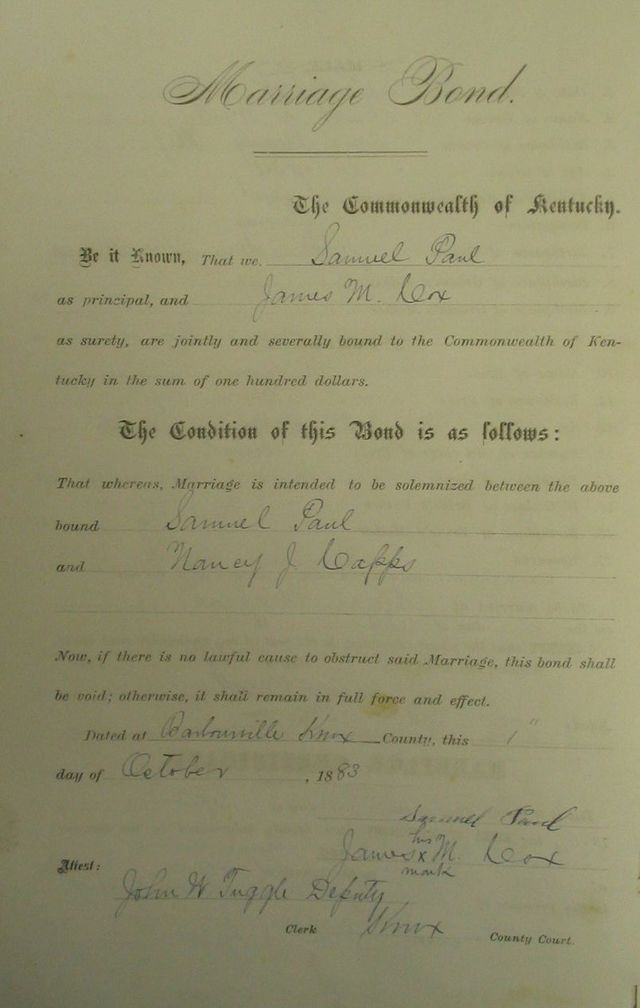 Marriage Bond.
The Commonwealth of Kentucky.
Be it Known, That we. Samuel Paul
as principal, and James M. Cox
as surety, are jointly and severally bound to the Commonwealth of Ken-
tucky in the sum of one hundred dollars.
The Condition of this Bond is as follows:
That whereas, Marriage is intended to be solemnized between the above
bound Samuel Paul
and Nancy J. Capps
Now, if there is no lawful cause to obstruct said Marriage, this bond shall
be void; otherwise, it shall remain in full force and effect.
Dated at Barbourville Knox County, this 1"
day of October, 1883
Samuel Paul
his
James x M. Cox
mark
Attest:
John W Tuggle Deputy
Clerk Knox County Court.